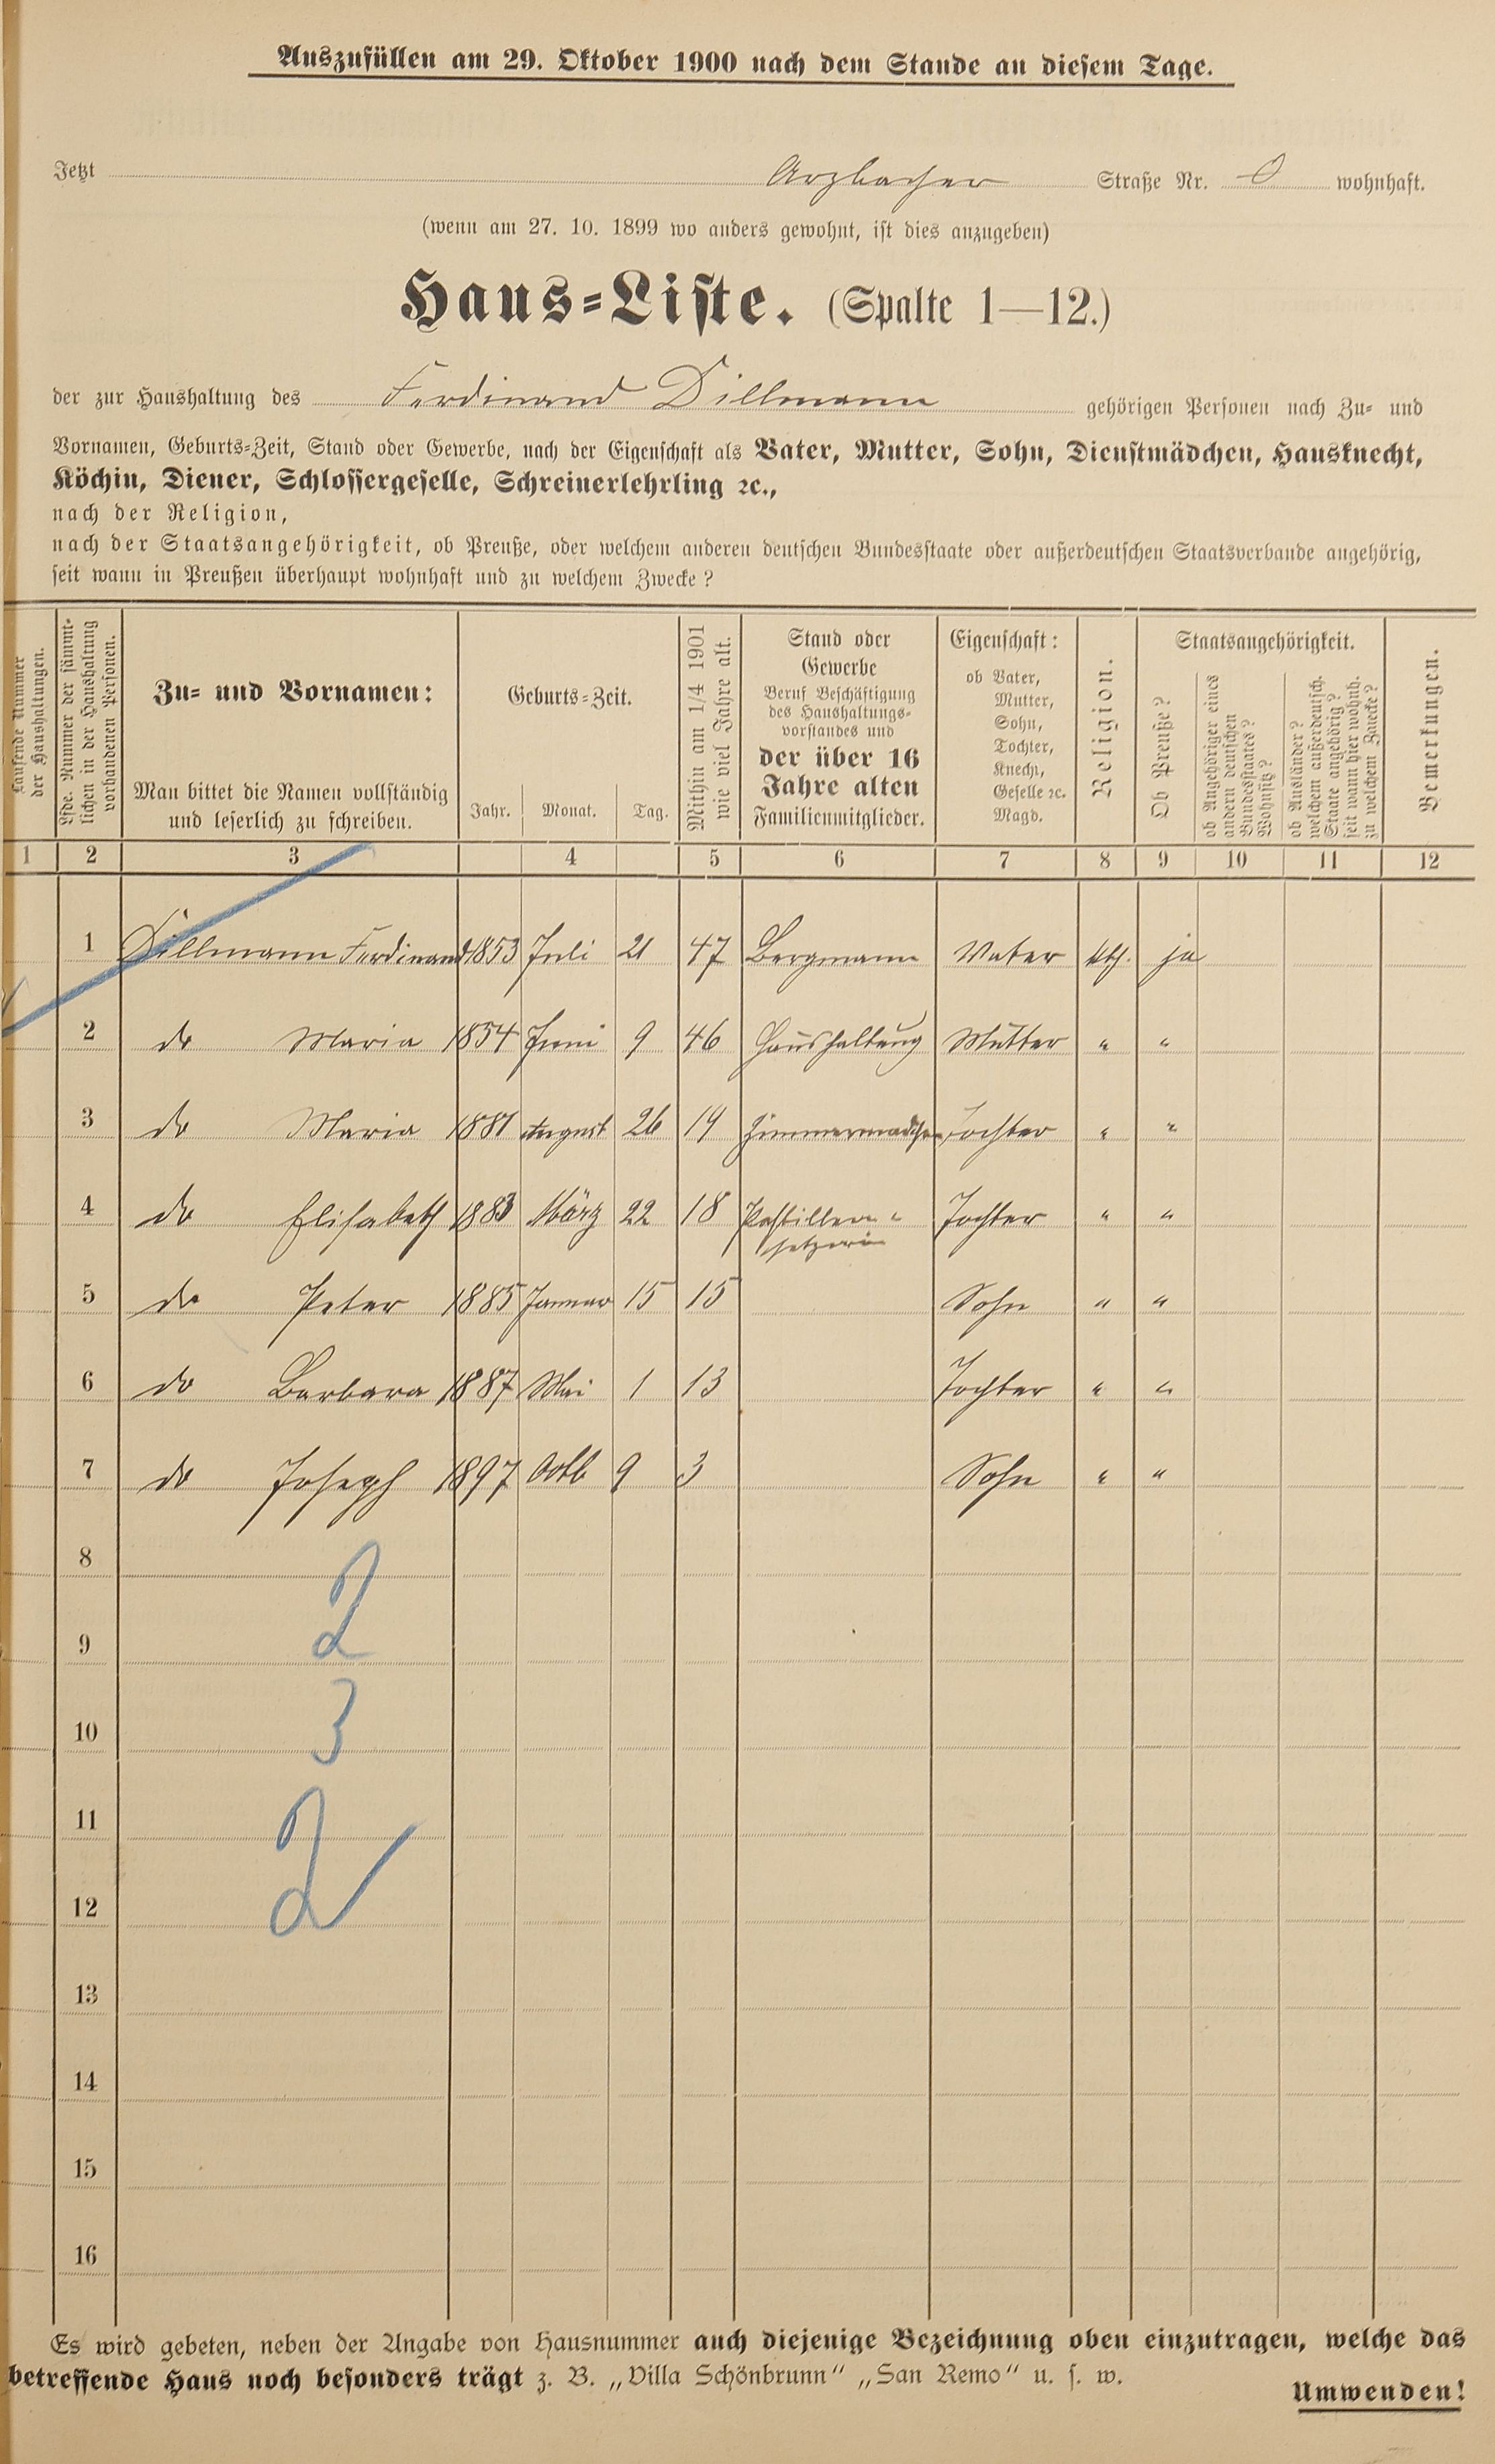 Auszufüllen am 29. Oktober 1900 nach dem Stande an diesem Tage.
Jetzt Arzbacher Straße Nr. 0 wohnhaft.
(wenn am 27. 10. 1899 wo anders gewohnt, ist dies anzugeben)
Haus-Liste. (Spalte 1—12.)
der zur Haushaltung des Ferdinand Dillmann gehörigen Personen nach Zu- und
Vornamen, Geburts-Zeit, Stand oder Gewerbe, nach der Eigenschaft als Vater, Mutter, Sohn, Dienstmädchen, Hausknecht,
Köchin, Diener, Schlossergeselle, Schreinerlehrling ꝛc.,
nach der Religion,
nach der Staatsangehörigkeit, ob Preuße, oder welchem anderen deutschen Bundesstaate oder außerdeutschen Staatsverbande angehörig,
seit wann in Preußen überhaupt wohnhaft und zu welchem Zwecke?
Laufende Nummer
der Haushaltungen.
Lfde. Nummer der sämmt-
lichen in der Haushaltung
vorhandenen Personen.
Zu- und Vornamen:
Man bittet die Namen vollständig
und leserlich zu schreiben.
Geburts-Zeit.
Jahr. Monat. Tag.
Mithin am 1/4 1901
wie viel Jahre alt.
Stand oder
Gewerbe
Beruf Beschäftigung
des Haushaltungs-
vorstandes und
der über 16
Jahre alten
Familienmitglieder.
Eigenschaft:
ob Vater,
Mutter,
Sohn,
Tochter,
Knecht,
Geselle ꝛc.
Magd.
Religion.
Staatsangehörigkeit.
Ob Preuße?
ob Angehöriger eines
andern deutschen
Bundesstaates?
Wohnsitz?
ob Ausländer?
welchem außerdeutsch.
Staate angehörig?
seit wann hier wohnh.
zu welchem Zwecke?
Bemerkungen.
1 2 3 4 5 6 7 8 9 10 11 12
1 Dillmann Ferdinand 1853 Juli 21 47 Bergmann Vater kth. ja
2 do Maria 1854 Juni 9 46 Haushaltung Mutter " "
3 do Maria 1881 August 26 19 Zimmermädchen Tochter " "
4 do Elisabeth 1883 März 22 18 Pastillen-
setzerin Tochter " "
5 do Peter 1885 Januar 15 15 Sohn " "
6 do Barbara 1887 Mai 1 13 Tochter " "
7 do Joseph 1897 Octb 9 3 Sohn " "
8
2
9
10
3
11
2
12
13
14
15
16
Es wird gebeten, neben der Angabe von Hausnummer auch diejenige Bezeichnung oben einzutragen, welche das
betreffende Haus noch besonders trägt z. B. „Villa Schönbrunn“ „San Remo“ u. s. w.
Umwenden!